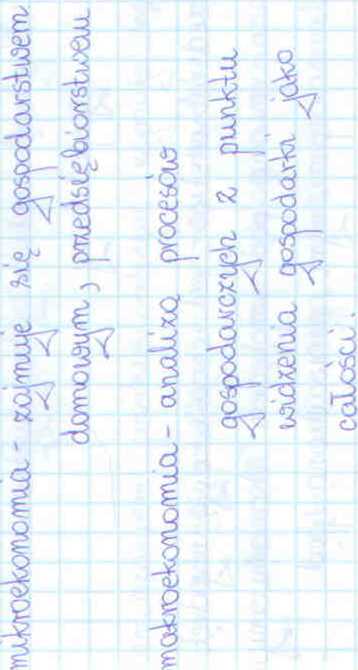 mikroekonomia - zajmuje się gospodarstwem
domowym, przedsiębiorstwem
makroekonomia - analizą procesów
gospodarczych z punktu
widzenia gospodarki jako
całości.